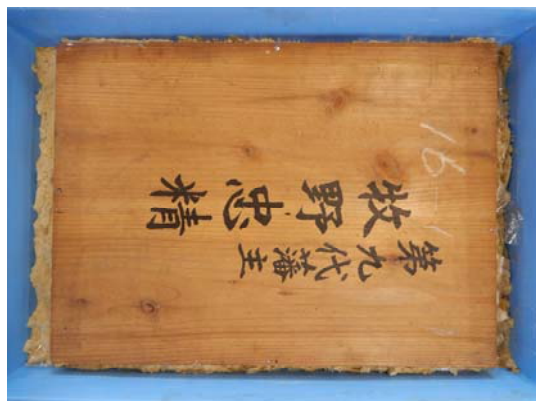 第九代藩主
牧野忠精